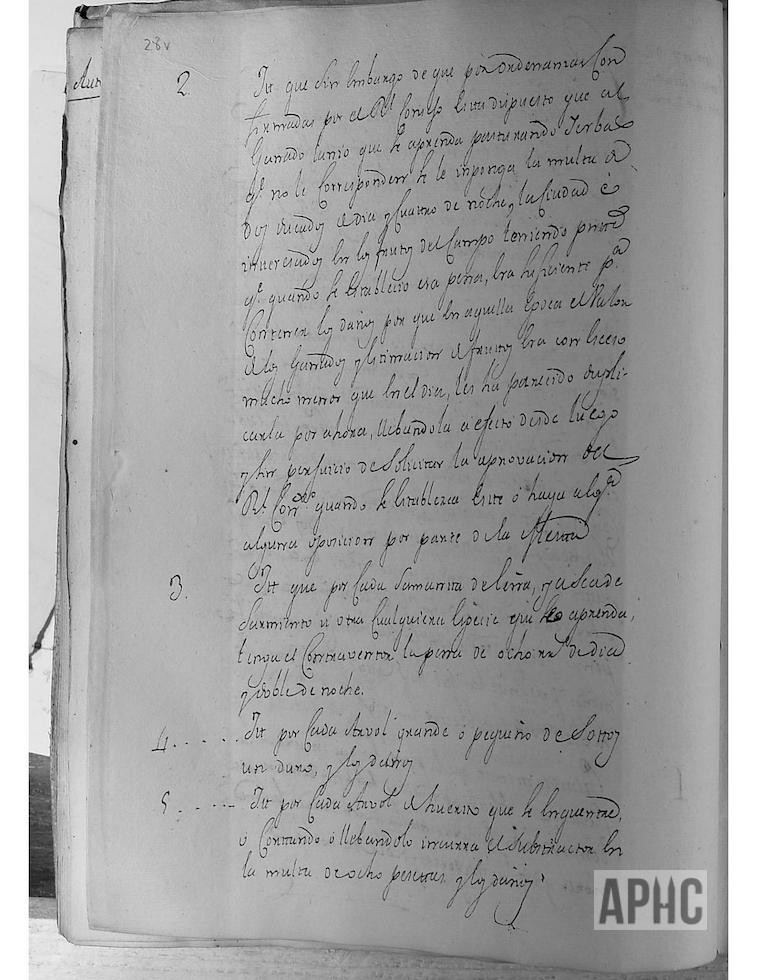 28v
Aut
2. Itt que sin embargo de que por ordenanzas Con
firmadas por el Rl Consejo esta dispuesto que al
Ganado lanio que se aprenda pasturando Ierbas
qe no le Corresponden se le inponga la multa de
dos ducados de dia y Cuatro de noche, la Ciudad e
interesados en los frutos del Campo teniendo preste
qe quando se establecio esa pena, era suficiente pa
Contener los daños por que en aquella Epoca el Valor
de los Ganados y estimacion de frutos era con exceso
mucho menor que en el dia, les ha parecido dupli-
carla por ahora, llebandola a efecto desde luego
y sin perjuicio de Solicitar la aprovacion del
Rl Conso quando se establezca este o haya alge
alguna oposicion por parte de la
3. Itt que por Cada Samanta de leña, y asea de
Sarmiento u otra Cualquiera Especie que se aprenda,
tenga el Contraventor la pena de ocho rrs de dia
y doble de noche.
4..... Itt por Cada Arvol grande o pequeño de Sottos
un duro, y los daños
5..... Itt por Cada Arvol de huerto que se enquentre,
o Cortando o llebandolo incurra el Substractor en
la multa de ocho pesettas y los daños.
APHC